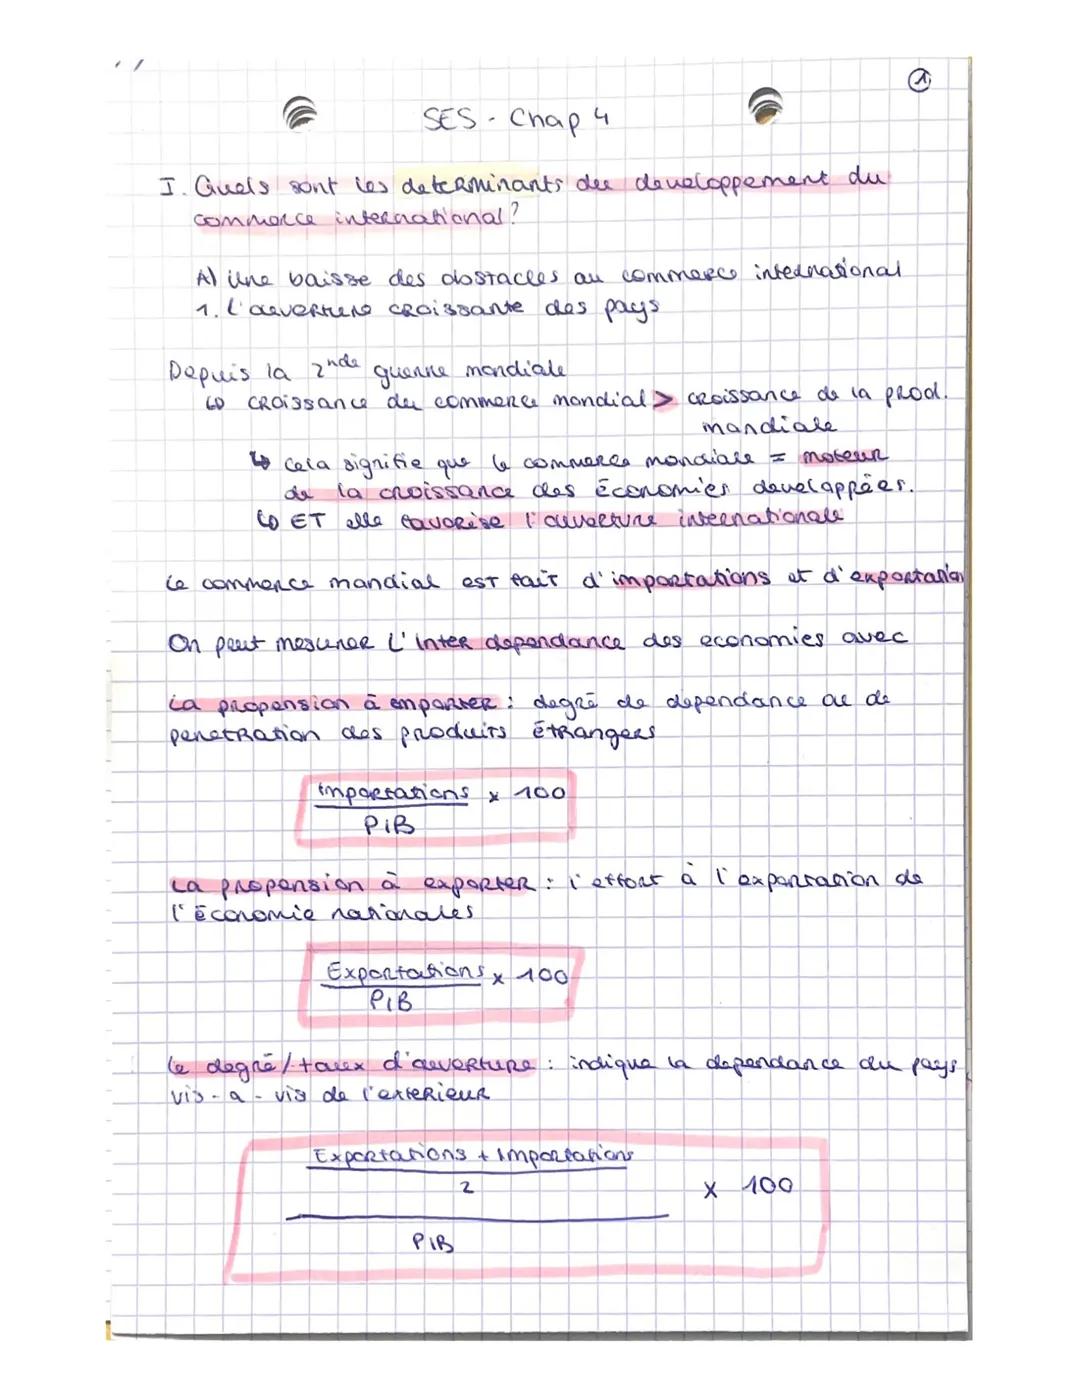 ①
SES - Chap 4
I. Quels sont les determinants du developpement du
commerce international?
A) Une baisse des obstacles au commerce international
1. L'ouverture croissante des pays
Depuis la 2nde guerre mondiale
↳ croissance du commerce mondial > croissance de la prod.
mondiale
↳ cela signifie que le commerce mondiale = moteur
de la croissance des économies developpées.
↳ ET elle favorise l'ouverture internationale
Le commerce mondial est fait d'importations et d'exportation
On peut mesurer l'inter dependance des economies avec
La propension à emporter : degré de dependance ou de
penetration des produits étrangers
Importations x 100
PIB
La propension à exporter : l'effort à l'exportation de
l'économie nationales
Exportations x 100
PIB
Le degré / taux d'ouverture : indique la dependance du pays
vis-a-vis de l'exterieur
Exportations + Importations
2
x 100
PIB